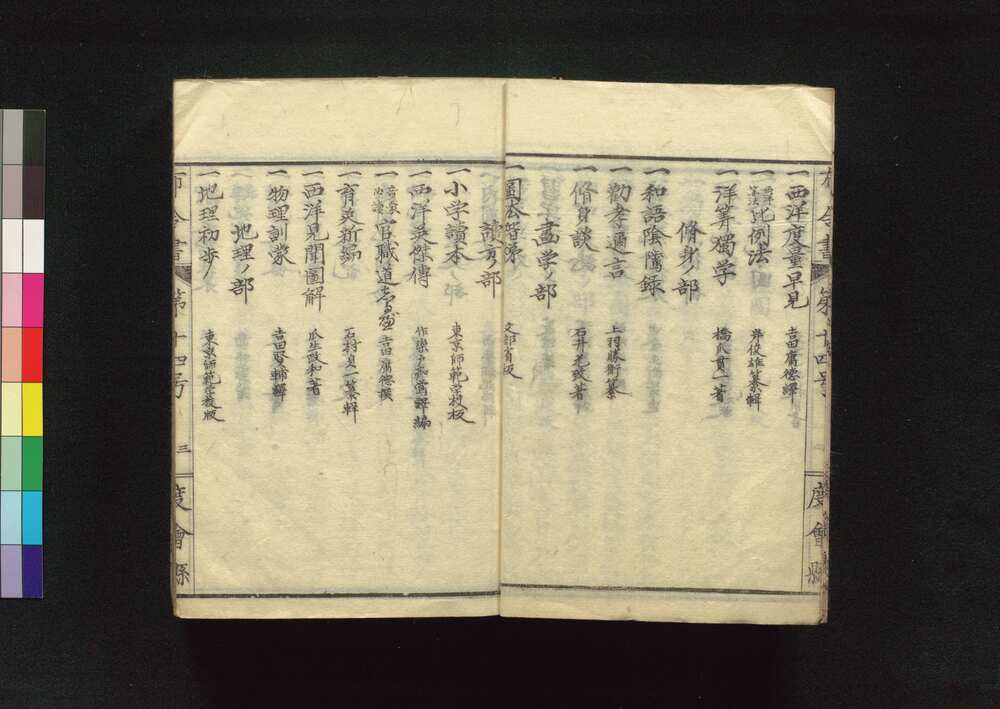 布令書 第十四号
度會縣
一西洋度量早見 吉田庸徳譯
一比例法 岸俊雄纂輯
一洋筭獨学 橋爪貫一著
脩身ノ部
一和語陰隲録
一勧孝邇言 上羽勝衛纂
一脩身談 石井光致著
畫学ノ部
一圖法階梯 文部省板
讀方ノ部
一小学讀本 東京師範学校板
一西洋英傑傳 作楽戸痴鶯譯編
一官職道志る邊 吉田庸徳撰
一育英新編 石村貞一纂輯
一西洋見聞圖解 瓜生政和著
一物理訓蒙 吉田賢輔譯
地理ノ部
一地理初歩 東京師範学校版
布令書 第十四号 三
度會縣